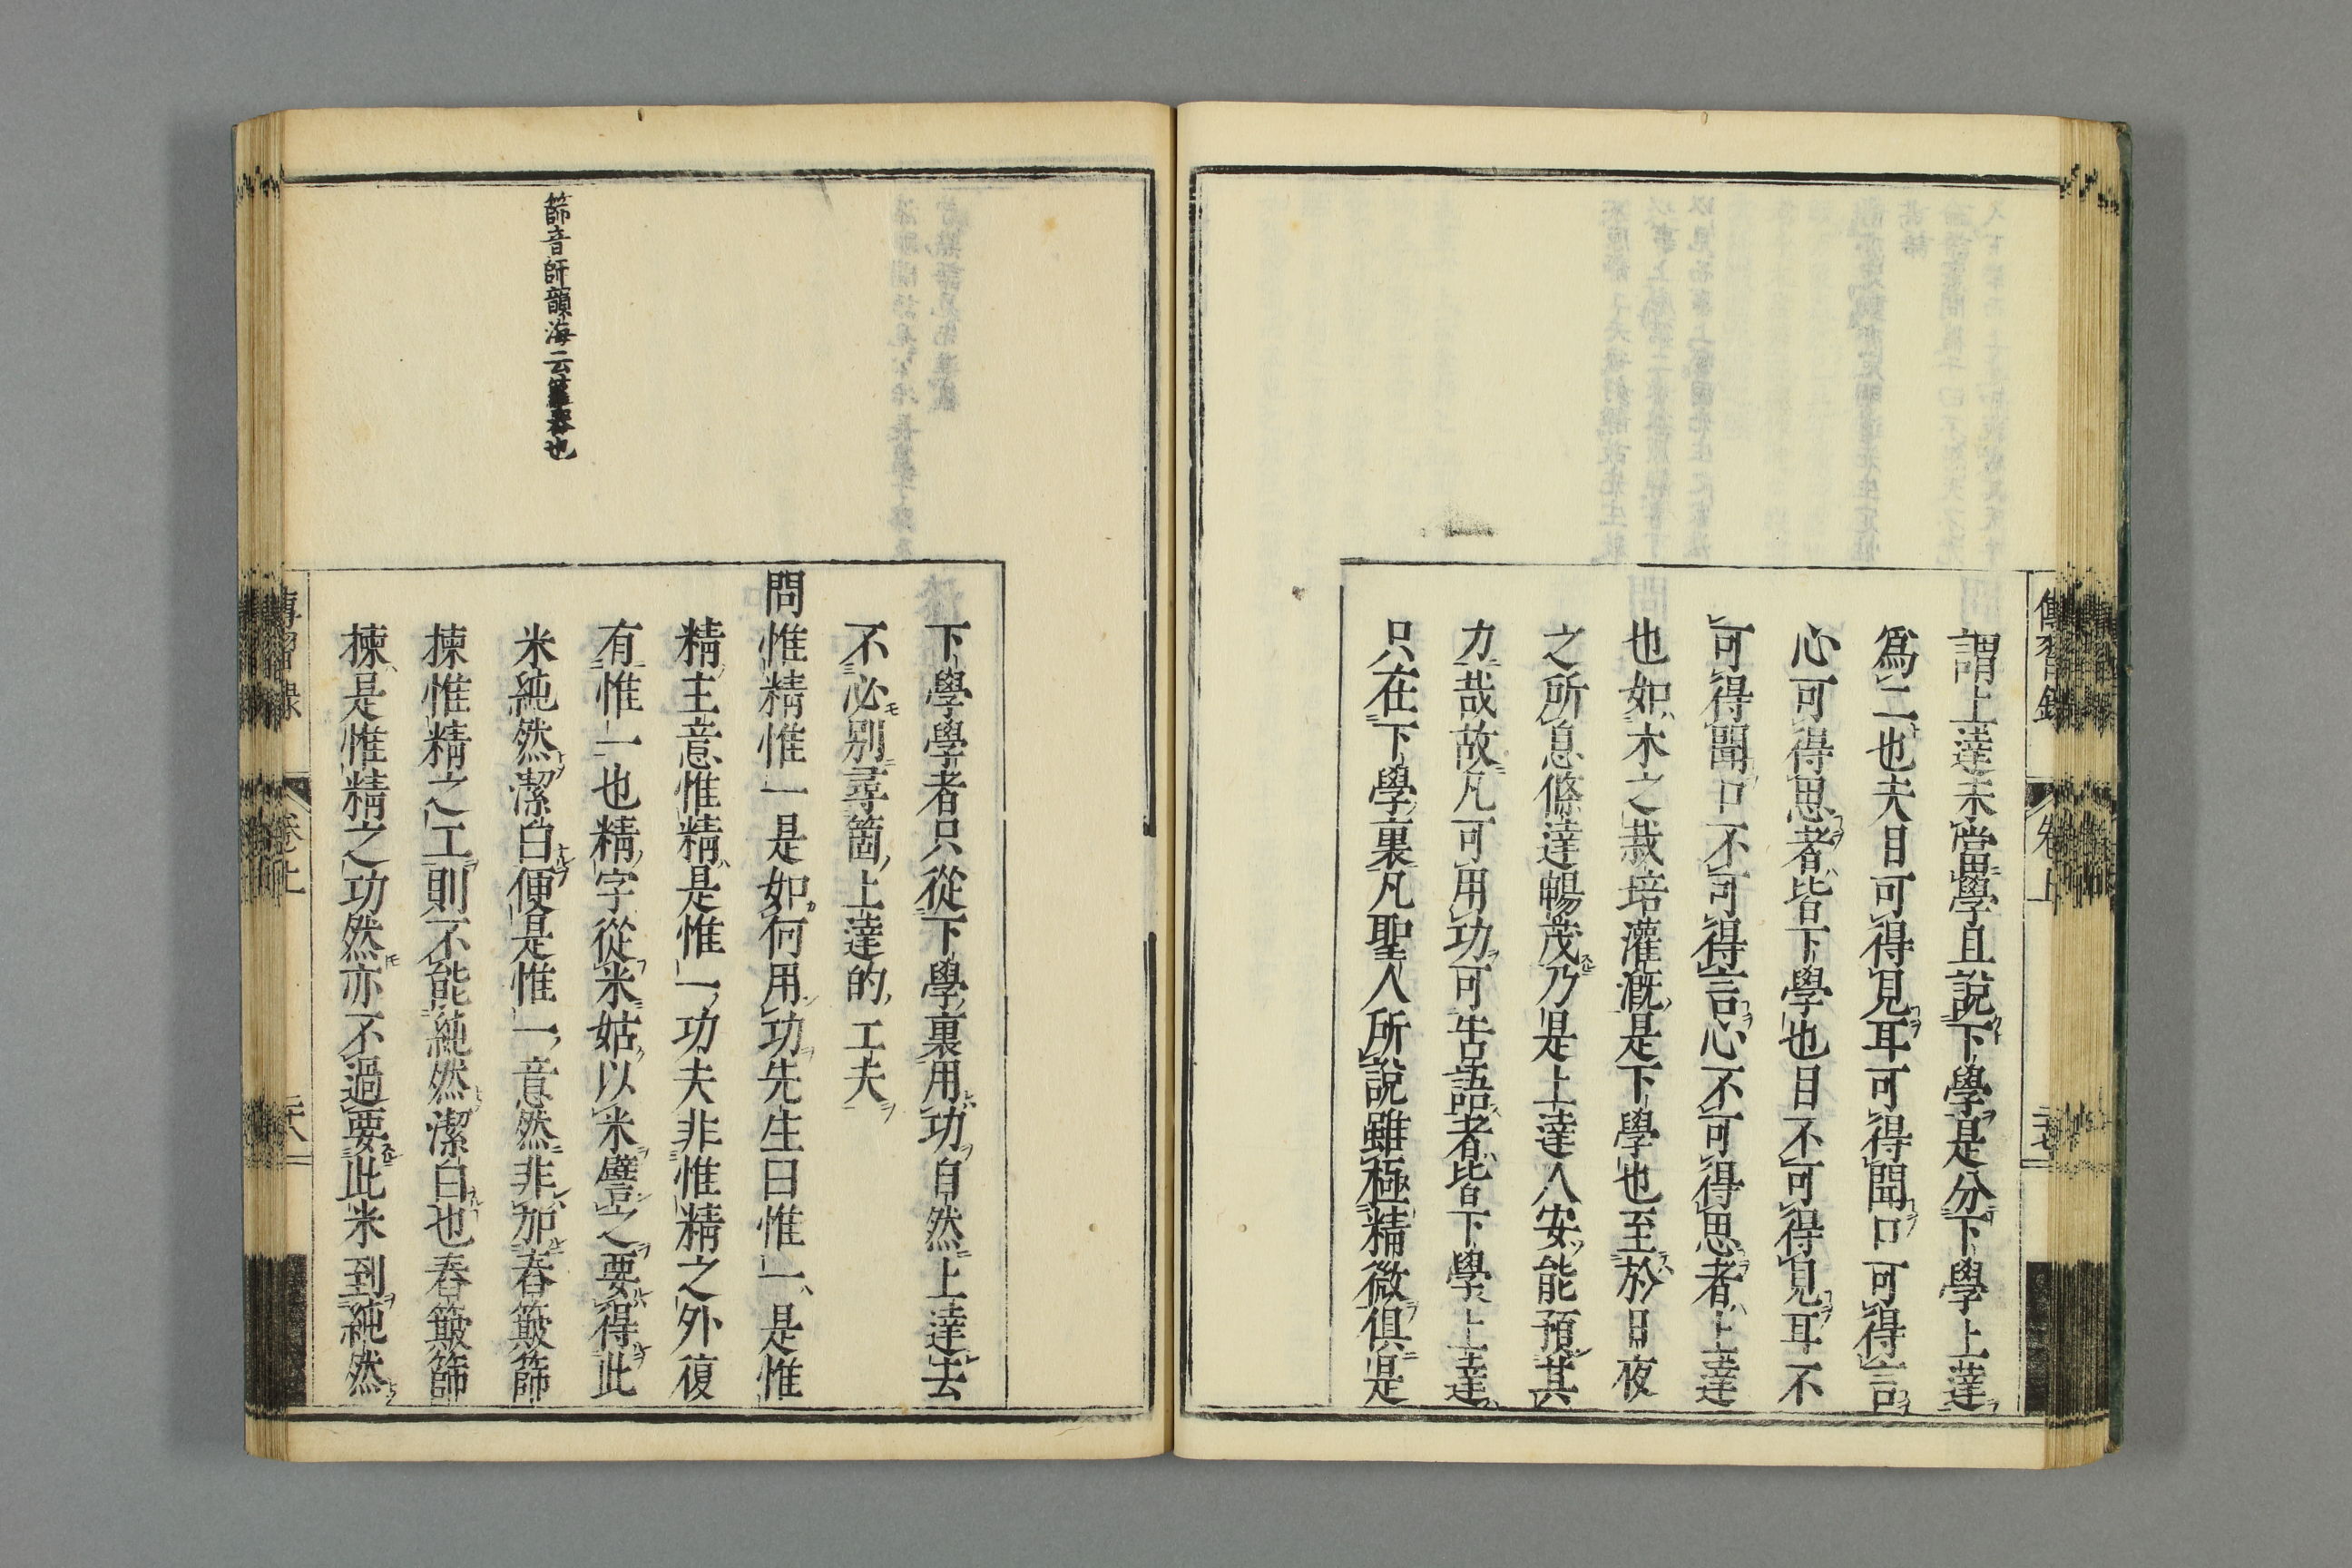 傳習錄 卷上 二十七
謂上達未當學且說下學是分下學上達
爲二也夫目可得見耳可得聞口可得言
心可得思者皆下學也目不可得見耳不
可得聞口不可得言心不可得思者上達
也如木之栽培灌漑是下學也至於日夜
之所息條達暢茂乃是上達人安能預其
力哉故凡可用功可告語者皆下學上達
只在下學裏凡聖人所說雖極精微俱是
下學學者只從下學裏用功自然上達去
不必別尋箇上達的工夫
問惟精惟一是如何用功先生曰惟一是惟
精主意惟精是惟一功夫非惟精之外復
有惟一也精字從米姑以米譬之要得此
米純然潔白便是惟一意然非加舂簸篩
揀惟精之工則不能純然潔白也舂簸篩
揀是惟精之功然亦不過要此米到純然
篩音師韻海云
傳習錄 卷上 二十八